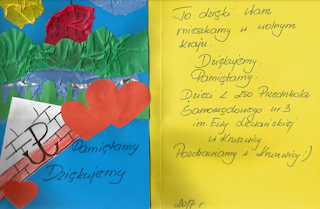 Pamiętamy
Dziękujemy
To dzięki Wam
mieszkamy w wolnym
kraju.
Dziękujemy.
Pamiętamy.
Dzieci z 250 Przedszkola
Samorządowego nr 3
im. Ewy
w Kruszwicy
Pozdrawiamy z Kruszwicy :)
2017 r